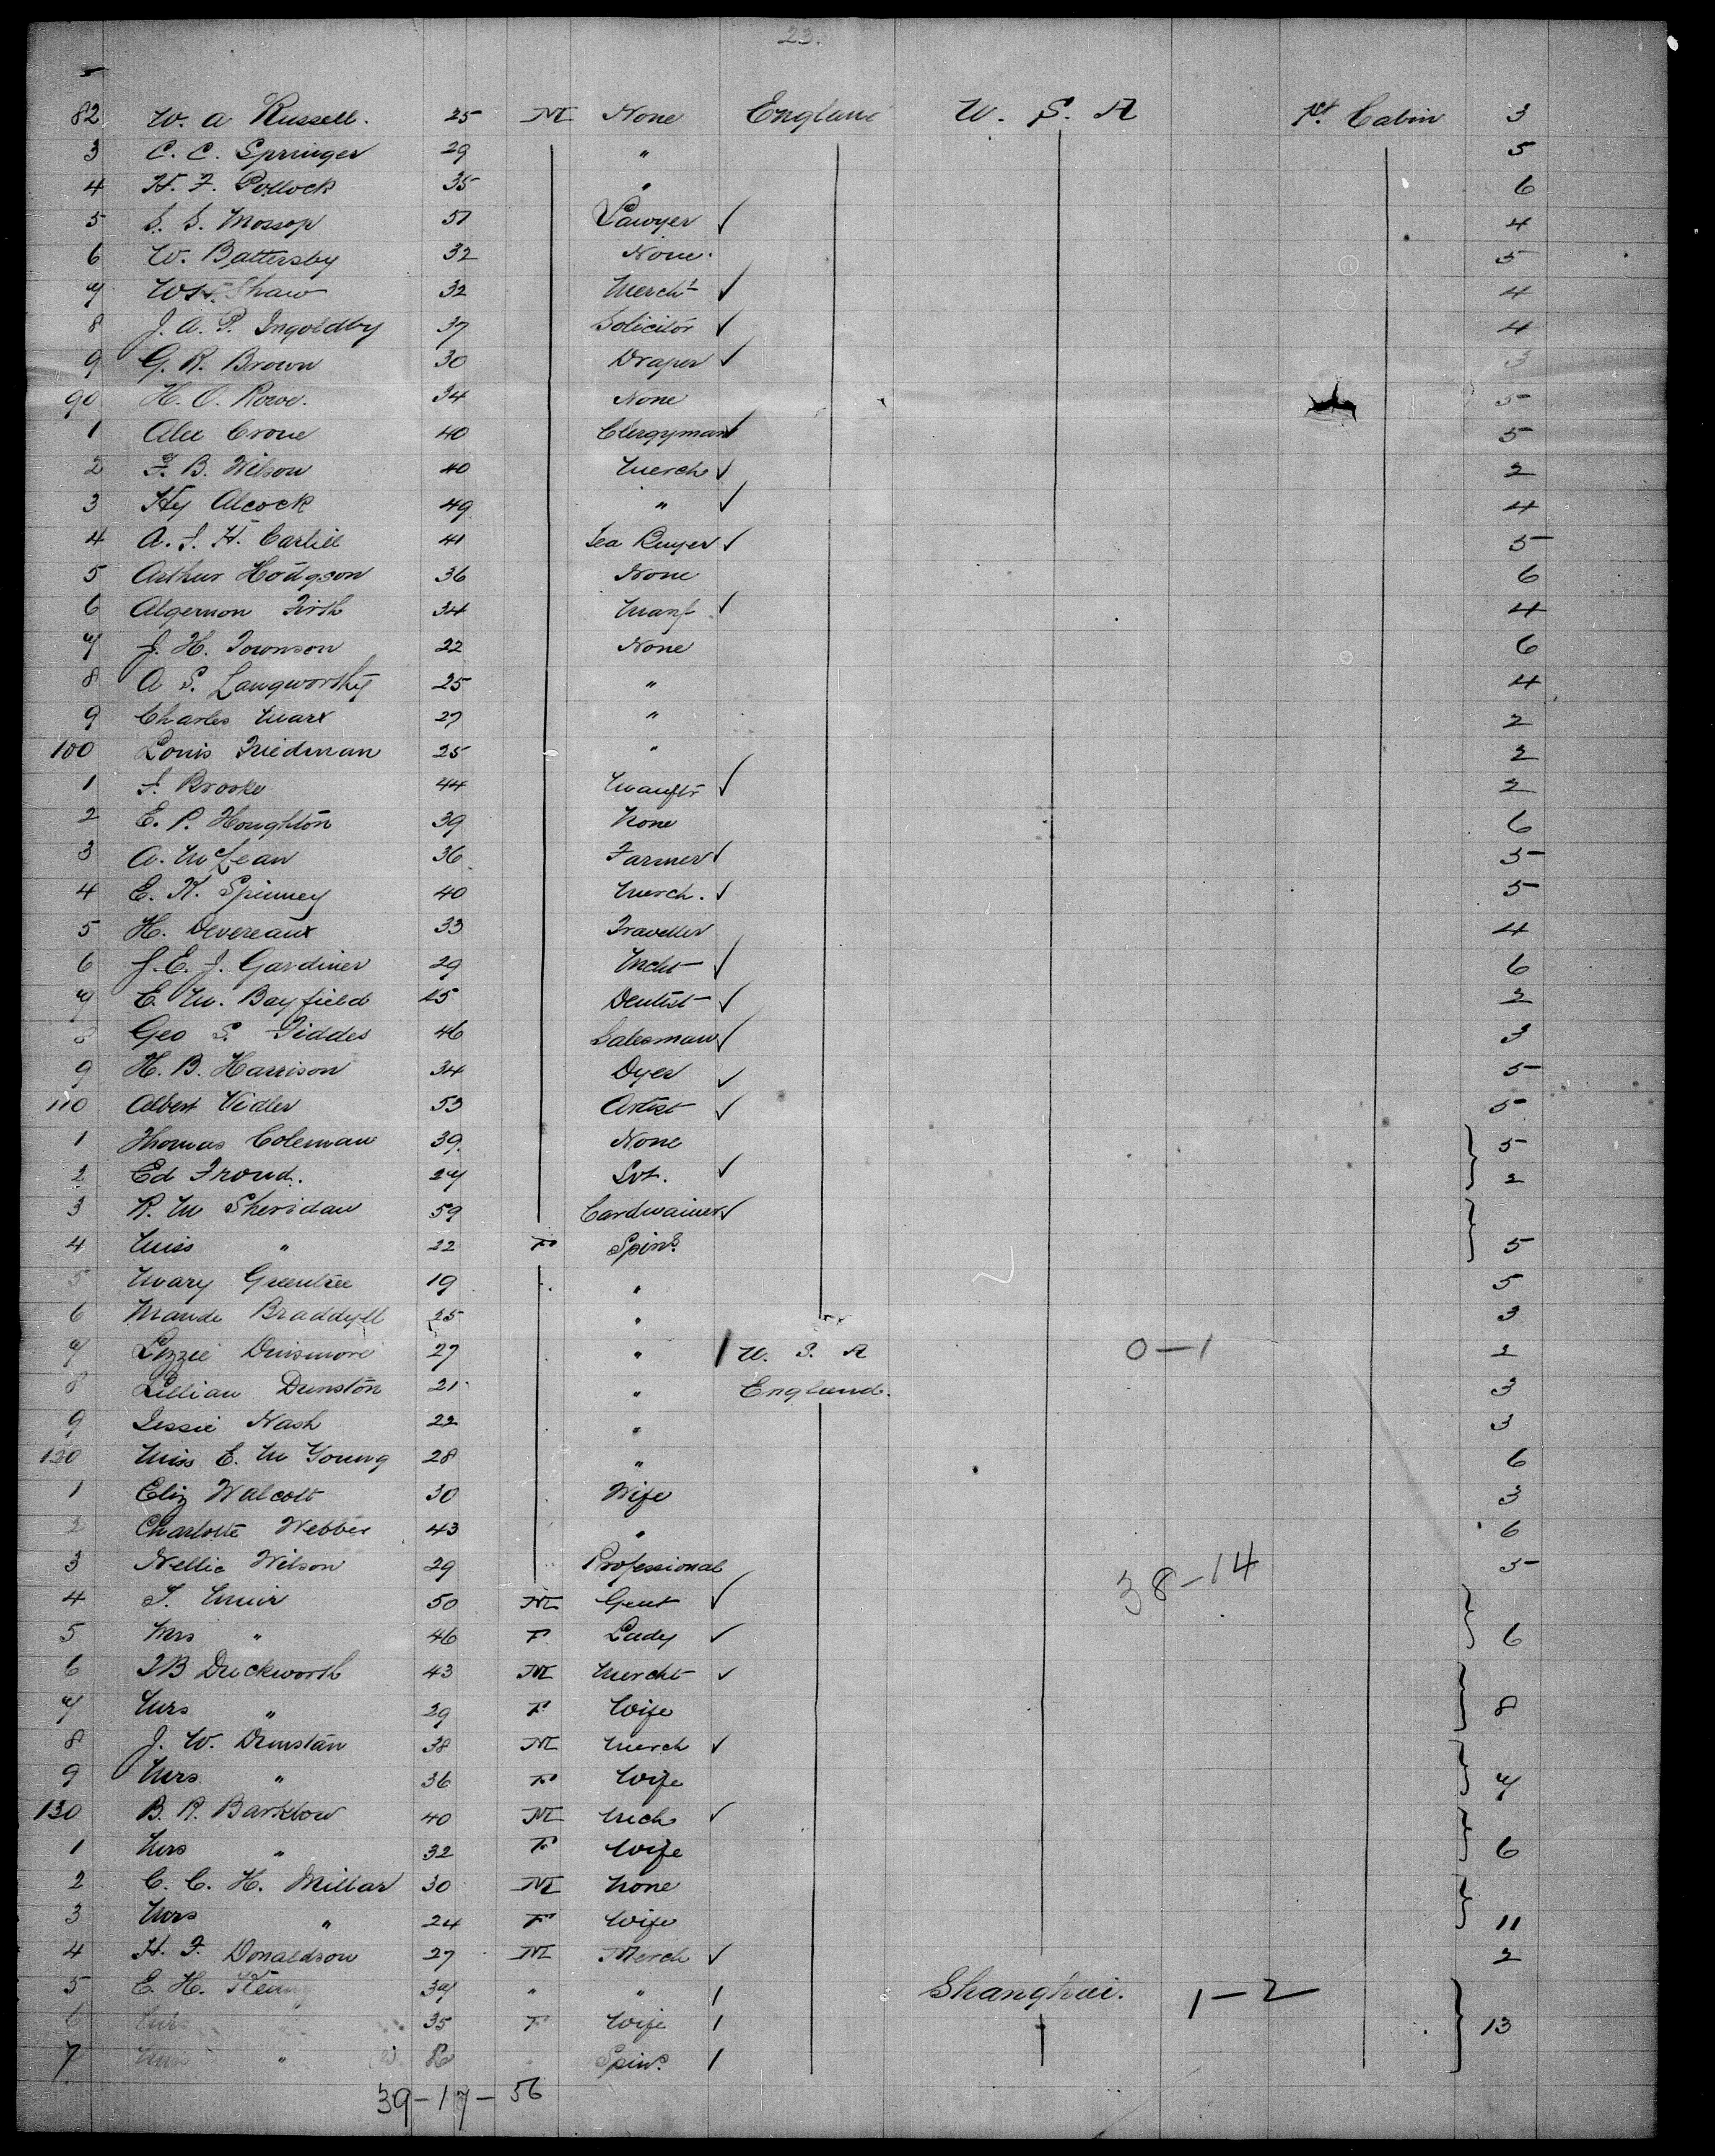 23.
82 W. A Russell. 25 M None England U. S. A 1st Cabin 3
3 C. C. Springer 29 " 5
4 H. F. Pollock 35 " 6
5 S. S. Mossop 51 Lawyer ✓ 4
6 W. Battersby 32 None. 5
7 W H. Shaw 32 Mercht ✓ 4
8 J. A. P. Ingoldby 37 Solicitor ✓ 4
9 G. R. Brown 30 Draper ✓ 3
90 H. O. Rowe. 34 None 5
1 Alex Crone 40 Clergyman ✓ 5
2 F. B. Wilson 40 Merch ✓ 2
3 Hy Alcock 49 " ✓ 4
4 A. J. H. Carlill 41 Tea Buyer ✓ 5
5 Arthur Hodgson 36 None 6
6 Algernon Firth 34 Manf ✓ 4
7 J. H. Townson 22 None 6
8 A S. Langworthy 25 " 4
9 Charles Marx 27 " 2
100 Louis Friedman 25 " 2
1 J. Brooke 44 Manftr ✓ 2
2 E. P. Houghton 39 None 6
3 A. McLean 36 Farmer ✓ 5
4 E. K. Spinney 40 Merch. ✓ 5
5 H. Devereaux 33 Traveller 4
6 J. E. J. Gardiner 29 Mcht ✓ 6
7 E. M. Bayfield 45 Dentist ✓ 2
8 Geo S. Fiddes 46 Salesman ✓ 3
9 H. B. Harrison 34 Dyer ✓ 5
110 Albert Vidler 53 Artist ✓ 5
1 Thomas Coleman 39. None 5
2 Ed Froud. 27 Svt. ✓ 2
3 R. M Sheridan 59 Cardwainer ✓
4 Miss " 22 F Spinr. 5
5 Mary Greentree 19 " 5
6 Maude Braddyll 25 " 3
7 Lizzie Dinsmore 27 " U. S. A 0-1 2
8 Lillian Dunston 21 " England. 3
9 Jessie Nash 22 " 3
120 Miss E. M Young 28 " 6
1 Eliz Walcott 30 Wife 3
2 Charlotte Webber 43 " 6
3 Nellie Wilson 29 Professional 38-14 5
4 T. Muir 50 M Gent ✓
5 Mrs " 46 F Lady ✓ 6
6 Duckworth 43 M Mercht ✓
7 Mrs " 29 F Wife 8
8 J. W. Dunstan 38 M Merch ✓
9 Mrs " 36 F Wife 7
130 B. R. Barklow 40 M Mch ✓
1 Mrs " 32 F Wife 6
2 C. C. H. Millar 30 M None
3 Mrs " 24 F Wife 11
4 H. F. Donaldson 27 M Merch ✓ 2
5 E. H. 37 " " Shanghai. 1-2
6 Mrs 35 F Wife 13
7 Miss " Spinr.
39-17-56